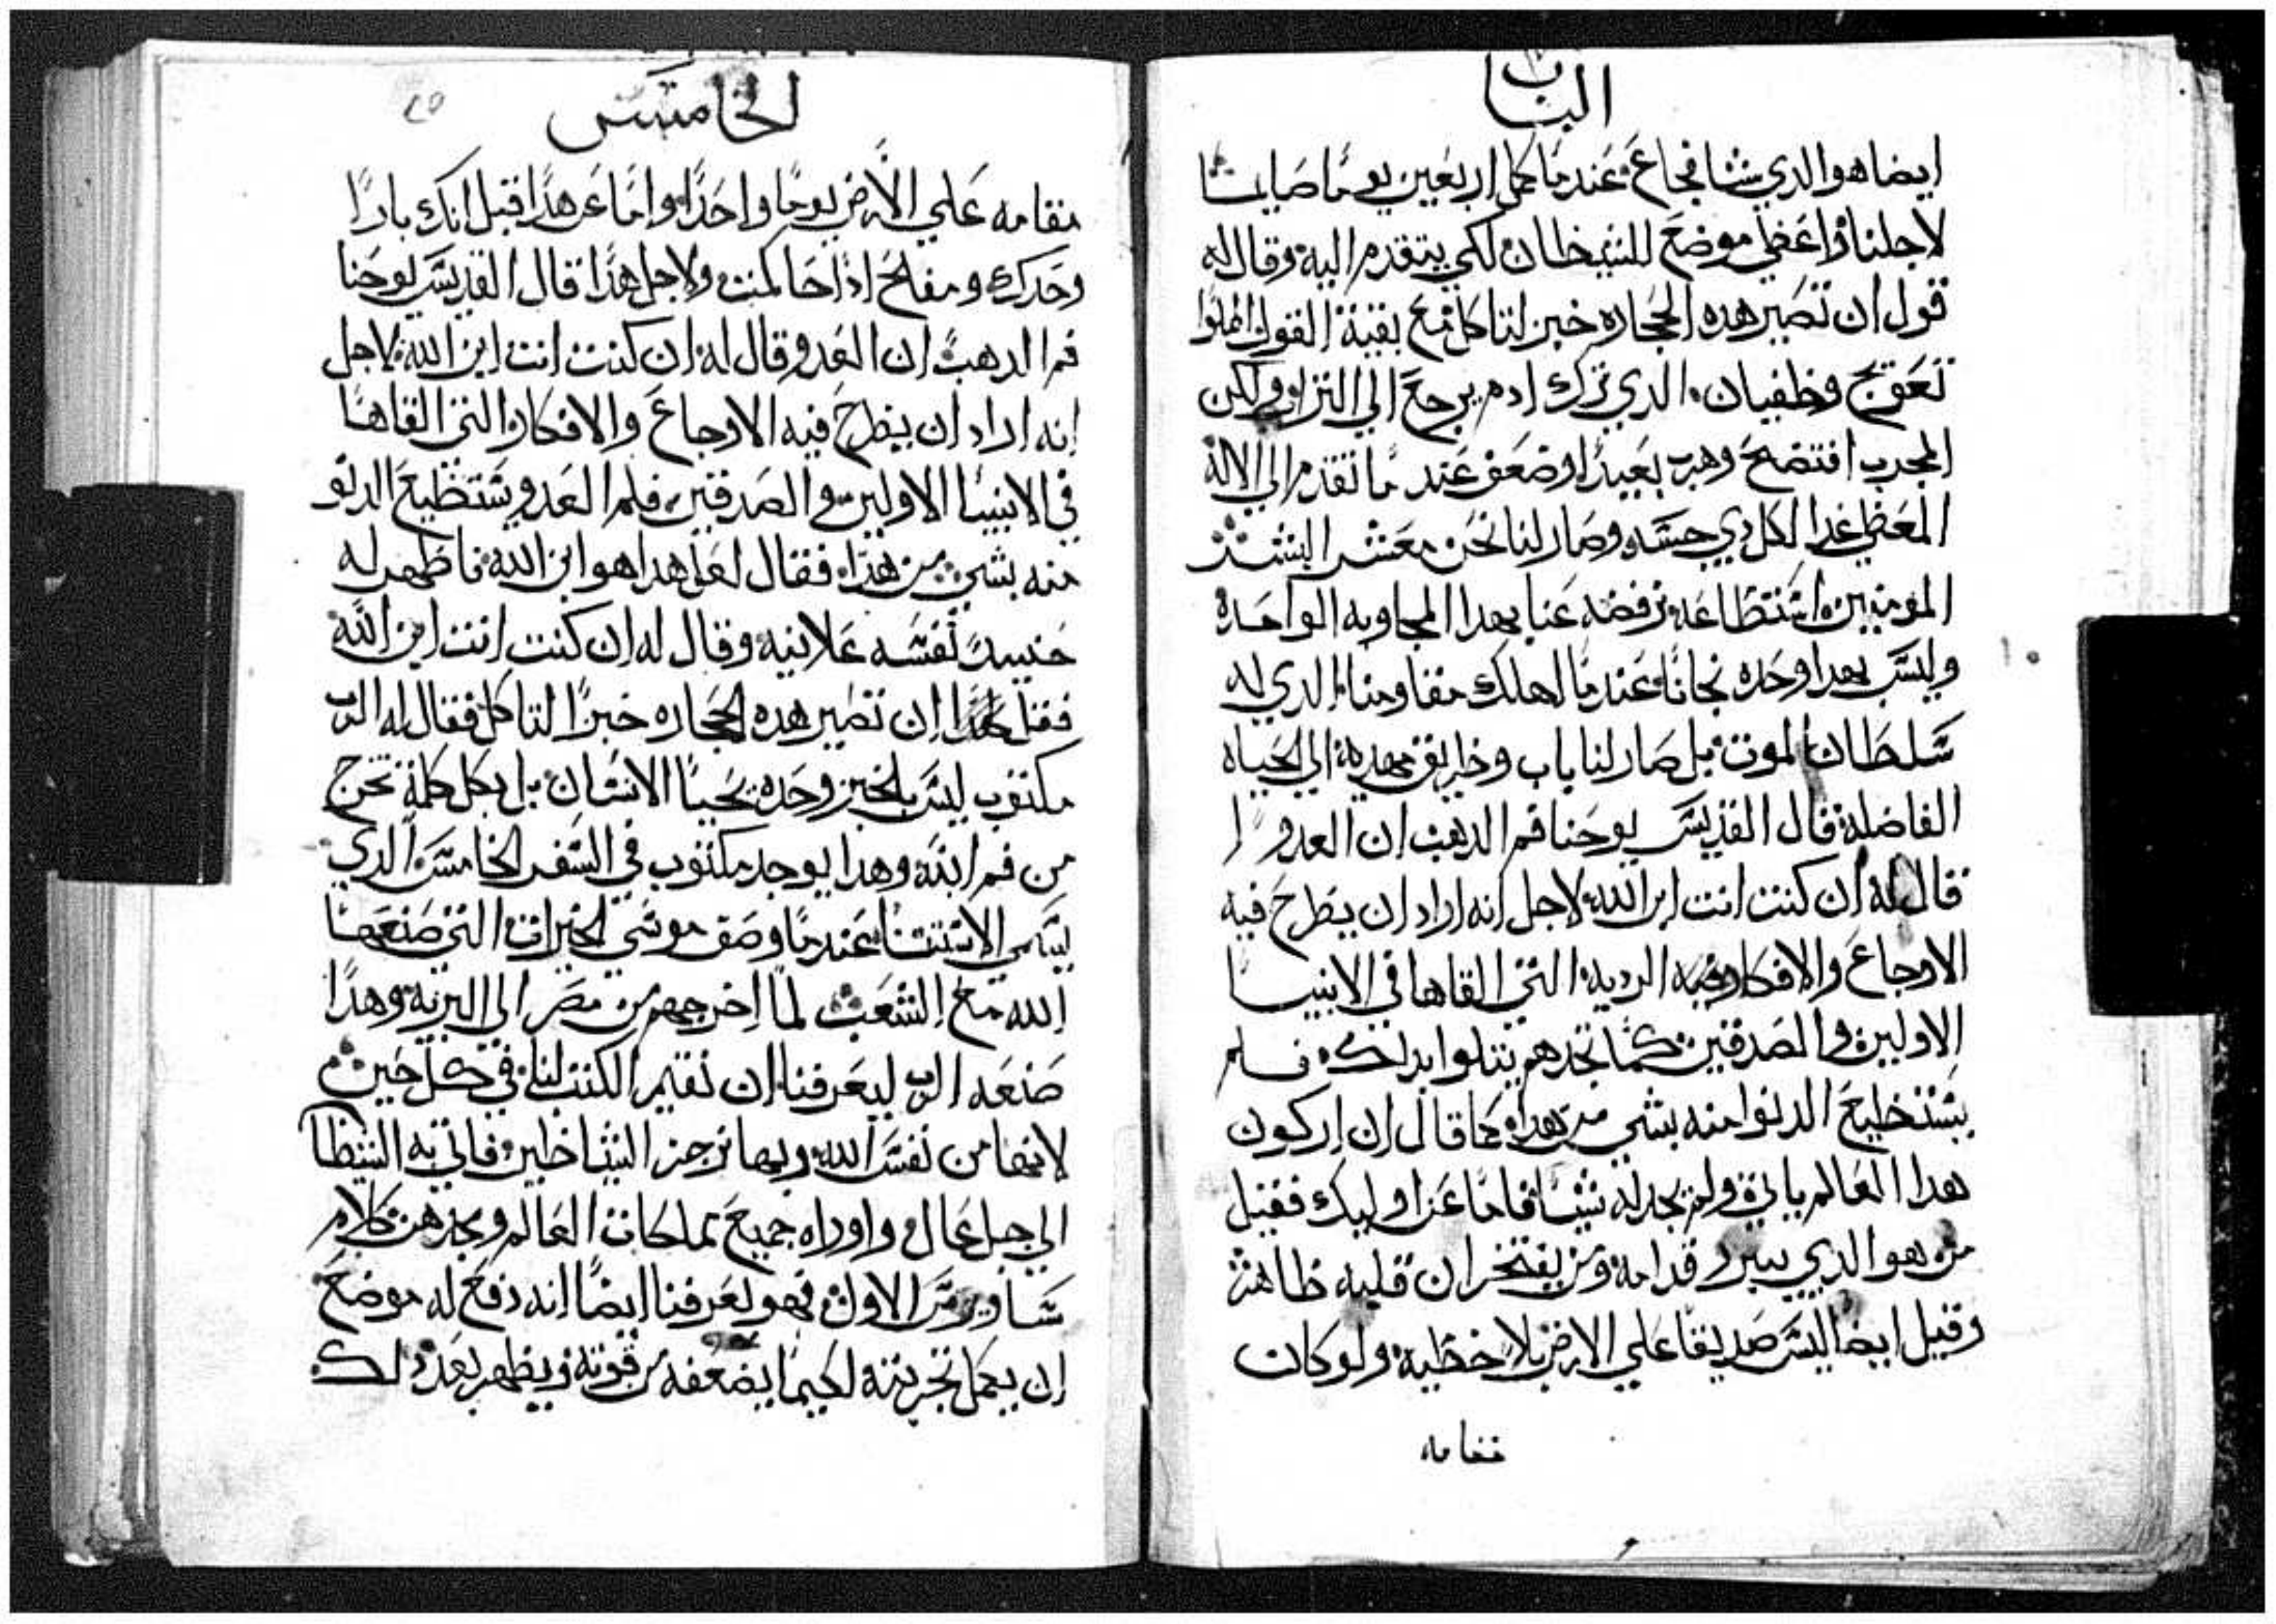 الباب
ايضا هو الدي شا فجاع عندما كمل اربعين يوما صايما
لاجلنا واعطي موضع للشيطان لكي يتقدم اليه وقال له
قول ان تصير هده الحجاره خبز لتاكل مع بقية القول
تعوج وطغيان الدي ترك ادم يرجع الي التراب ولكن
المجرب افتضح وهرب بعيدًا وضعف عند ما تقدم الي الاله
المعطي غدا لكل دي جسد وصار لنا نحن معشر البشر
المومنين استطاعه نرفضه عنا بهدا المجاوبه الواحده
وليس بهدا وحده نجانا عندما اهلك مقاومنا الدي له
سلطان الموت بل صار لنا باب وطريق مهديه الي الحياه
الفاضله قال القديس يوحنا فم الدهب ان العدو
قال له ان كنت انت ابن الله لاجل انه اراد ان يطرح فيه
الاوجاع والافكار الرديه التي القاها في الانبيا
الاولين والصدقين كما تجدهم يتلوا بدلك فلم
يستطيع الدنوا منه بشي من هدا كما قال ان اركون
هدا العالم ياتي ولم يجد له شيا فاما عن اوليك فقيل
من هو الدي يبرر قدامه ومن يفتخر ان قلبه طاهر
وقيل ايضا ليس صديقا علي الارض بلا خطيه ولو كان
مقامه
الخامس
٢٥
مقامه علي الارض يومًا واحدًا واما عن هدا قيل انك بارًا
وحدك ومفلح ادا حاكمت ولاجل هدا قال القديس يوحنا
فم الدهب ان العدو قال له ان كنت انت ابن الله لاجل
انه اراد ان يطرح فيه الاوجاع والافكار التي القاها
في الانبيا الاولين والصدقين فلم العدو يستطيع الدنو
منه بشي من هدا فقال لعل هدا هو ابن الله فاظهر له
حنيد نفسه علانيه وقال له ان كنت انت ابن الله
فقل ان تصير هده الحجاره خبزًا لتاكل فقال له الرب
مكتوب ليس بالخبز وحده يحيا الانسان بل بكل كلمة تخرج
من فم الله وهدا يوجد مكتوب في السفر الخامس الدي
يسمي الاستتنا عندما وصف موسي الخيرات التي صنعها
الله مع الشعب لما اخرجهم من مصر الي البريه وهدا
صنعه الرب ليعرفنا ان نقيم الكتب لنا في كل حين
لانها من نفس الله وبها نزجر الشياطين فاتي به الشيطا
الي جبل عال واوراه جميع مملكات العالم ونجد هن كلام
ساويرس الاول فهو يعرفنا ايضًا انه دفع له موضع
ان يعمل تجربته لكيما يضعفه من قوته ويظهر بعد دلك